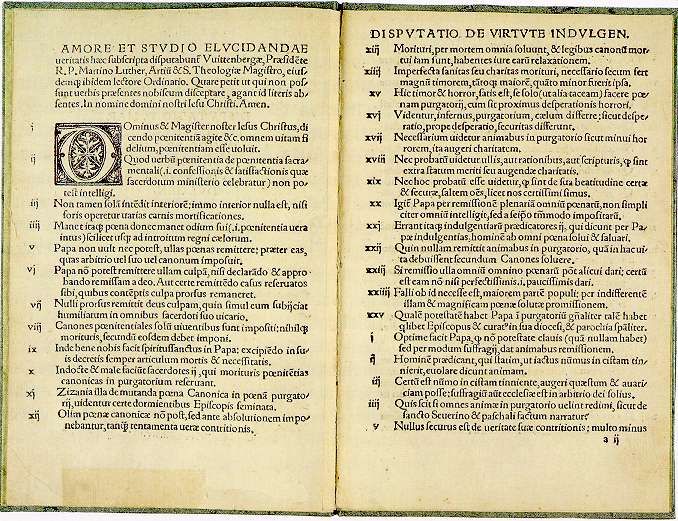 AMORE ET STVDIO ELVCIDANDAE
veritatis hæc subscripta disputabunť Vuittenbergæ, Præsidēte
R. P. Martino Luther, Artiū & S. Theologiæ Magistro, eius-
dem ꝗ ibidem lectore Ordinatio. Quare petit ut qui non pos-
sunt uerbis præsentes nobiscum disceptare, agant id literis ab-
sentes. In nomine domini nostri Iesu Christi. Amen.
i DOminus & Magister noster Iesus Christus, di-
cendo pœnitentiā agite &c. omnem uitam fi-
delium, pœnitentiam esse uoluit.
ij Quod uerbū pœnitentia de pœnitentia sacra-
mentali (.i. confessionis & satisfactionis quæ
sacerdotum ministerio celebratur) non po-
test intelligi.
iij Non tamen solā intēdit interiorē: immo interior nulla est, nisi
foris operetur uarias carnis mortificationes.
iiij Manet itaq pœna donec manet odium sui (.i. pœnitentia uera
intus) scilicet usq ad introitum regni cælorum.
v Papa non uult nec potest, ullas pœnas remittere: præter eas,
quas arbitrio uel suo uel canonum imposuit.
vj Papa nō potest remittere ullam culpā, nisi declarādo & appro-
bando remissam a deo. Aut certe remittēdo casus reseruatos
sibi, quibus contēptis culpa prorsus remaneret.
vij Nulli prorsus remittit deus culpam, quin simul eum subijciat
humiliatum in omnibus sacerdoti suo uicario.
viij Canones pœnitentiales solū uiuentibus sunt impositi: nihilq
morituris, secundū eosdem debet imponi.
ix Inde bene nobis facit spiritussanctus in Papa: excipiēdo in su-
is decretis semper articulum mortis & necessitatis.
x Indocte & male faciūt sacerdotes ij, qui morituris pœnitētias
canonicas in purgatorium reseruant.
xj Zizania illa de mutanda pœna Canonica in pœnā purgato-
rij, uidentur certe dormientibus Episcopis seminata.
xij Olim pœnæ canonicæ nō post, sed ante absolutionem impo-
nebantur, tanq̄ tentamenta ueræ contritionis.
DISPVTATIO DE VIRTVTE INDVLGEN.
xiij Morituri, per mortem omnia soluunt, & legibus canonū mor-
tui iam sunt, habentes iure earū relaxationem.
xiiij Imperfecta sanitas seu charitas morituri, necessario secum fert
magnū timorem, tātoq maiorē, quāto minor fuerit ipsa.
xv Hic timor & horror, satis est, se solo (ut alia taceam) facere pœ-
nam purgatorij, cum sit proximus desperationis horrori.
xvj Videntur, infernus, purgatorium, cælum differre: sicut despe-
ratio, prope desperatio, securitas differunt.
xvij Necessarium uidetur animabus in purgatorio sicut minui hor-
rorem, ita augeri charitatem.
xviij Nec probatū uidetur ullis, aut rationibus, aut scripturis, ꝙ sint
extra statum meriti seu augendæ charitatis.
xix Nec hoc probatū esse uidetur, ꝙ sint de sua beatitudine certæ
& securæ, saltem oēs, licet nos certissimi simus.
xx Igit̄ Papa per remissionē plenariā omniū pœnarū, non simpli-
citer omniū intelligit, sed a seipō tm̄modo impositarū.
xxj Errant itaq indulgentiarū prædicatores ij, qui dicunt per Pa-
pæ indulgentias, hominē ab omni pœna solui & saluari.
xxij Quin nullam remittit animabus in purgatorio, quā in hac ui-
ta debuissent secundum Canones soluere.
xxiij Si remissio ulla omniū omnino pœnarū pōt alicui dari; certū
est eam nō nisi perfectissimis .i. paucissimis dari.
xxiiij Falli ob id necesse est, maiorem partē populi: per indifferentē
illam & magnificam pœnæ solutæ promissionem.
xxv Qualē potestatē habet Papa ī purgatoriū gn̄aliter talē habet
qlibet Episcopus & curat in sua diocesi, & parochia spāliter.
j Optime facit Papa, ꝙ nō potestate clauis (quā nullam habet)
sed per modum suffragij, dat animabus remissionem.
ij Hominē prædicant, qui statim, ut iactus nūmus in cistam tin-
nierit, euolare dicunt animam.
iij Certū est nūmo in cistam tinniente, augeri quæstum & auari-
ciam posse; suffragiū aūt ecclesiæ est in arbitrio dei solius.
iiij Quis scit si omnes animæ in purgatorio uelint redimi, sicut de
sancto Seuerino & paschali factum narratur
v Nullus securus est de ueritate suæ contritionis; multo minus
a ij